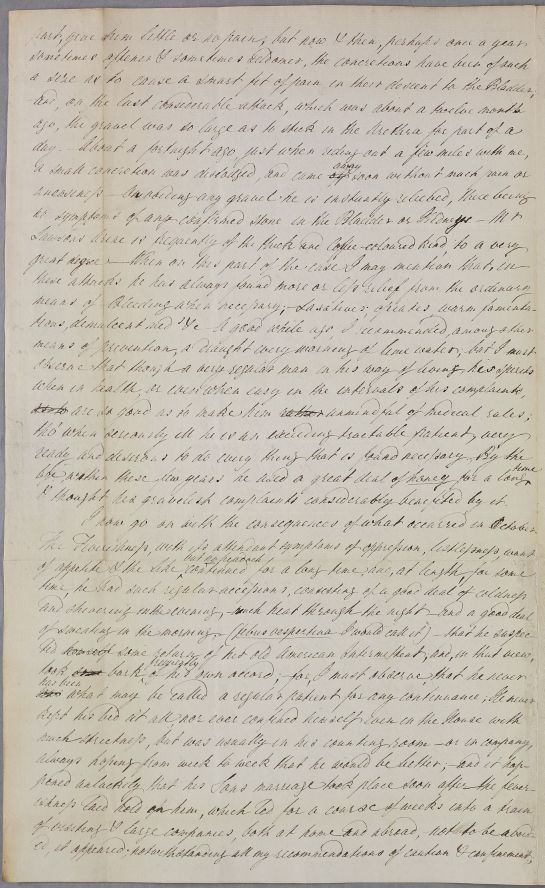 part, gave him little or no pain; but now & then, perhaps once a year
sometimes oftener & sometimes seldomer, the concretions have been of such
a size as to cause a smart fit of pain, in their descent to the Bladder;
and, on the last considerable attack, which was about a twelve month
ago, the gravel was so large as to stick in the Urethra for part of a
day — About a fortnight ago just when riding out a few miles with me,
a small concretion was dislodged, and came away soon without much pain or
uneasiness — On voiding any gravel he is instantly relieved, there being
no symptoms of any confirmed stone in the Bladder or Kidneys — Mr
Lawson's Urine is frequently of the thick and Coffee-coloured kind to a very
great degree — When on this part of the case I may mention that, in
these attacks he has always found more or less relief from the ordinary
means of Bleeding when necessary, — Laxatives, opiates, warm fomenta-
tions, demulcent diet &c — A good while ago I recommended, among other
means of prevention, a draught every morning of lime water; but I must
observe that though a very regular man in his way of living, his spirits
when in health, or even when easy in the intervals of his complaints,
are so good as to make him unmindful of medical rules;
tho' when seriously ill he is an exceeding tractable patient, very
ready and desirous to do every thing that is found necessary. By the
bye, within these few years he used a great deal of honey for a long time
& thought his gravelish complaints considerably benefited by it.
I now go on with the consequences of what occurred in October.
The Feverishness, with its attendant symptoms of oppression, listlessness, want
of appetite & the like continued, for a long time, and, at length, for some
time, he had such regular accessions, consisting of a good deal of coldness
and shivering in the evening, much heat through the night and a good deal
of sweating in the morning, (febris vespertina I would call it) — that he suspec
ted some return of his old American Intermittent, and, in that view,
took bark of his own accord; for I must observe that he never
has been what may be called a regular patient for any continuance, He never
kept his bed at all nor ever confined himself even in the House with
much strictness, but was usually in his counting room — or in company,
always hoping from week to week that he would be better; — and it hap-
pened unluckily that his Sons marriage took place soon after the fever-
ishness laid hold on him, which led for a course of weeks into a train
of visiting & large companies, both at home and abroad, not to be avoid-
ed, it appeared, notwithstanding all my recommendations of caution & confinement;